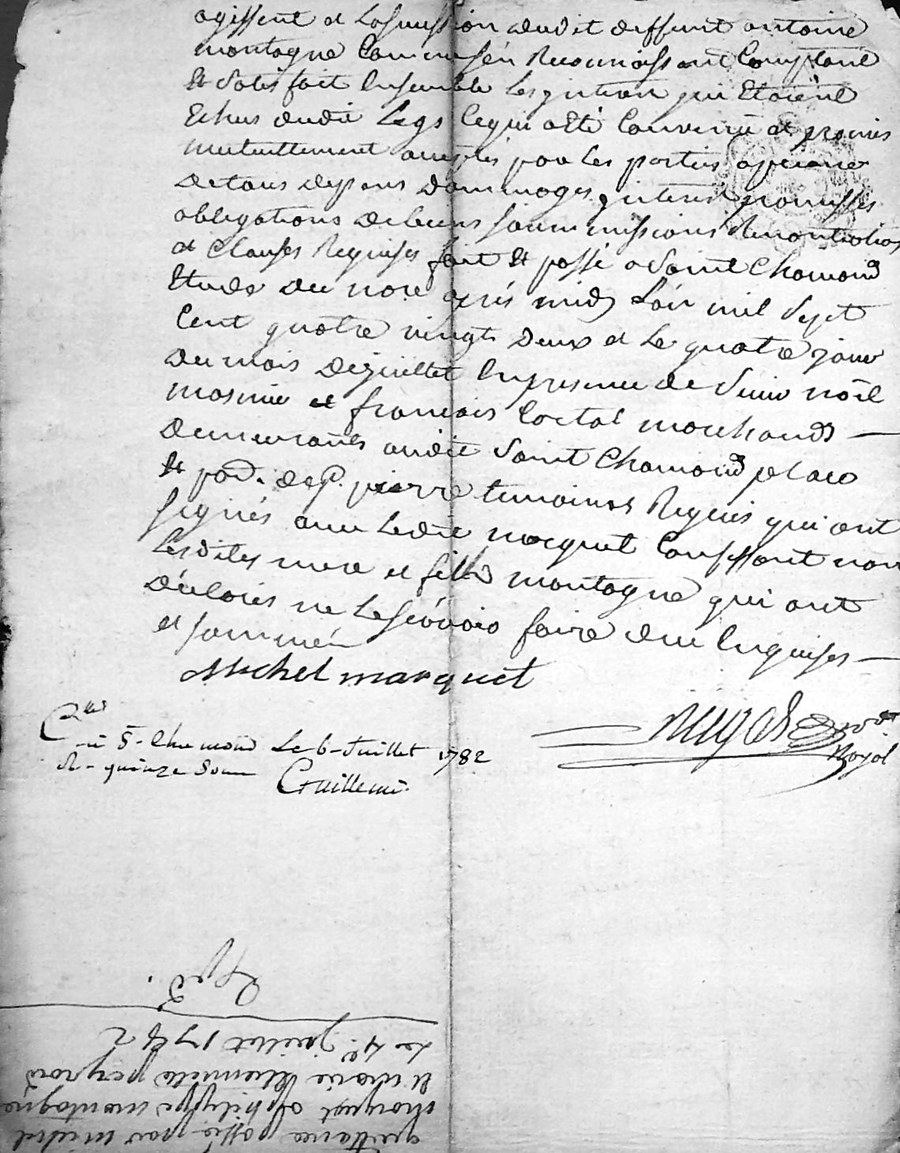 agissent et la succession dudit deffunt antoine
montagne Comme bien Reconnaissant Comptant
et Satisfait Ensemble les interets qui Etoient
Echus dudit Legs Ce qui a été Convenu et promis
mutuellement accepté par les parties a peine
de tous depens dommages interets promesses
obligations de biens soummissions Renontiations
et Clauses Requises fait et passé a Saint Chamond
Etude du nore après midy L'an mil Sept
Cent quatre vingt deux et Le quatre jour
du mois de juillet En presence de Sieur noël
et francois marchands
demeurants audit Saint Chamond place
et par. de St. pierre temoins Requis qui ont
signés avec Ledit marquet Confessant non
Lesdites mere et fille montagne qui ont
déclarés ne Le sçavoir faire de ce Enquises
et sommées
Michel marquet
Royal
Cllé
à St. Chamond Le 6 Juillet 1782
R. quinze Sous
Guillemin
quittance passée par michel
marquet a philippe montagne
et marie peyrard
Le 4e. juillet 1782
Expéd.